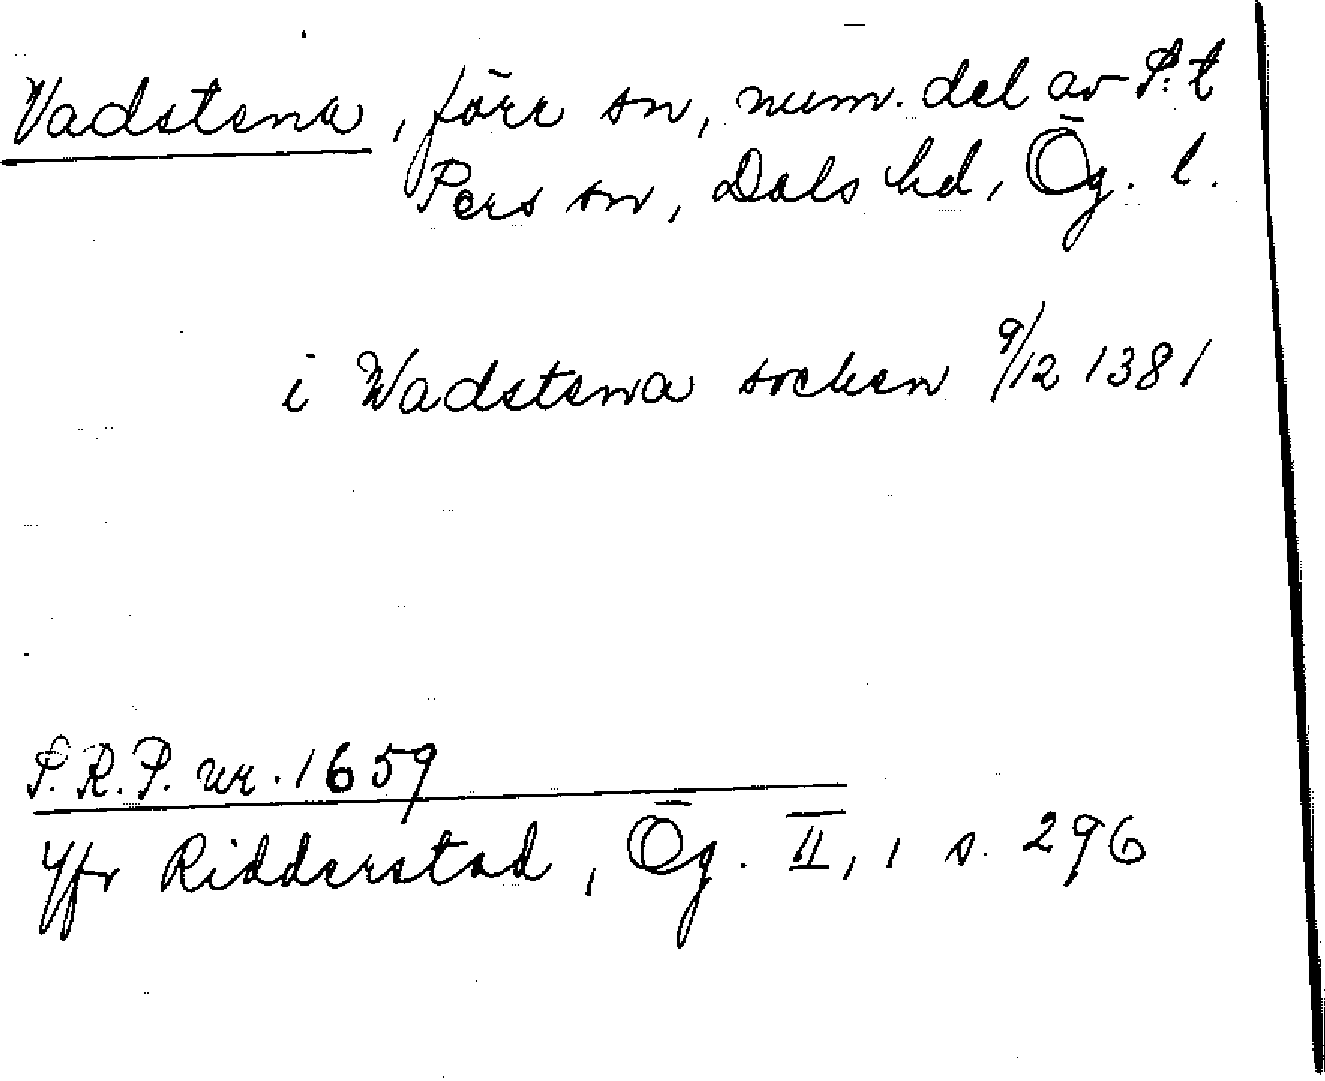 Vadstena, förr sn, num. del av S:t
Pers sn, Dals hd, Ög. l.
i Wadstena socken 9/12 1381
S.R.P. nr. 1659
Jfr Ridderstad, Ög. II, 1 s. 296